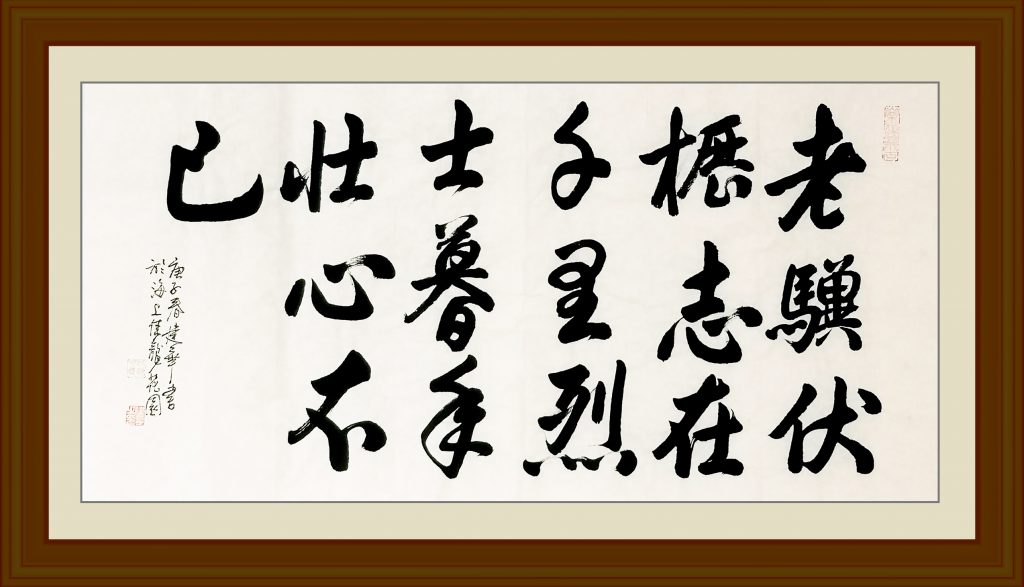 老驥伏
櫪志在
千里烈
士暮年
壮心不
已
庚子春建華書
於海上佳龍花園